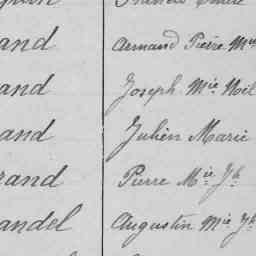 and Armand Pierre Mie
and Joseph Mie Noël
and Julien Marie
rand Pierre Mie Jh
andel Augustin Mie Jh